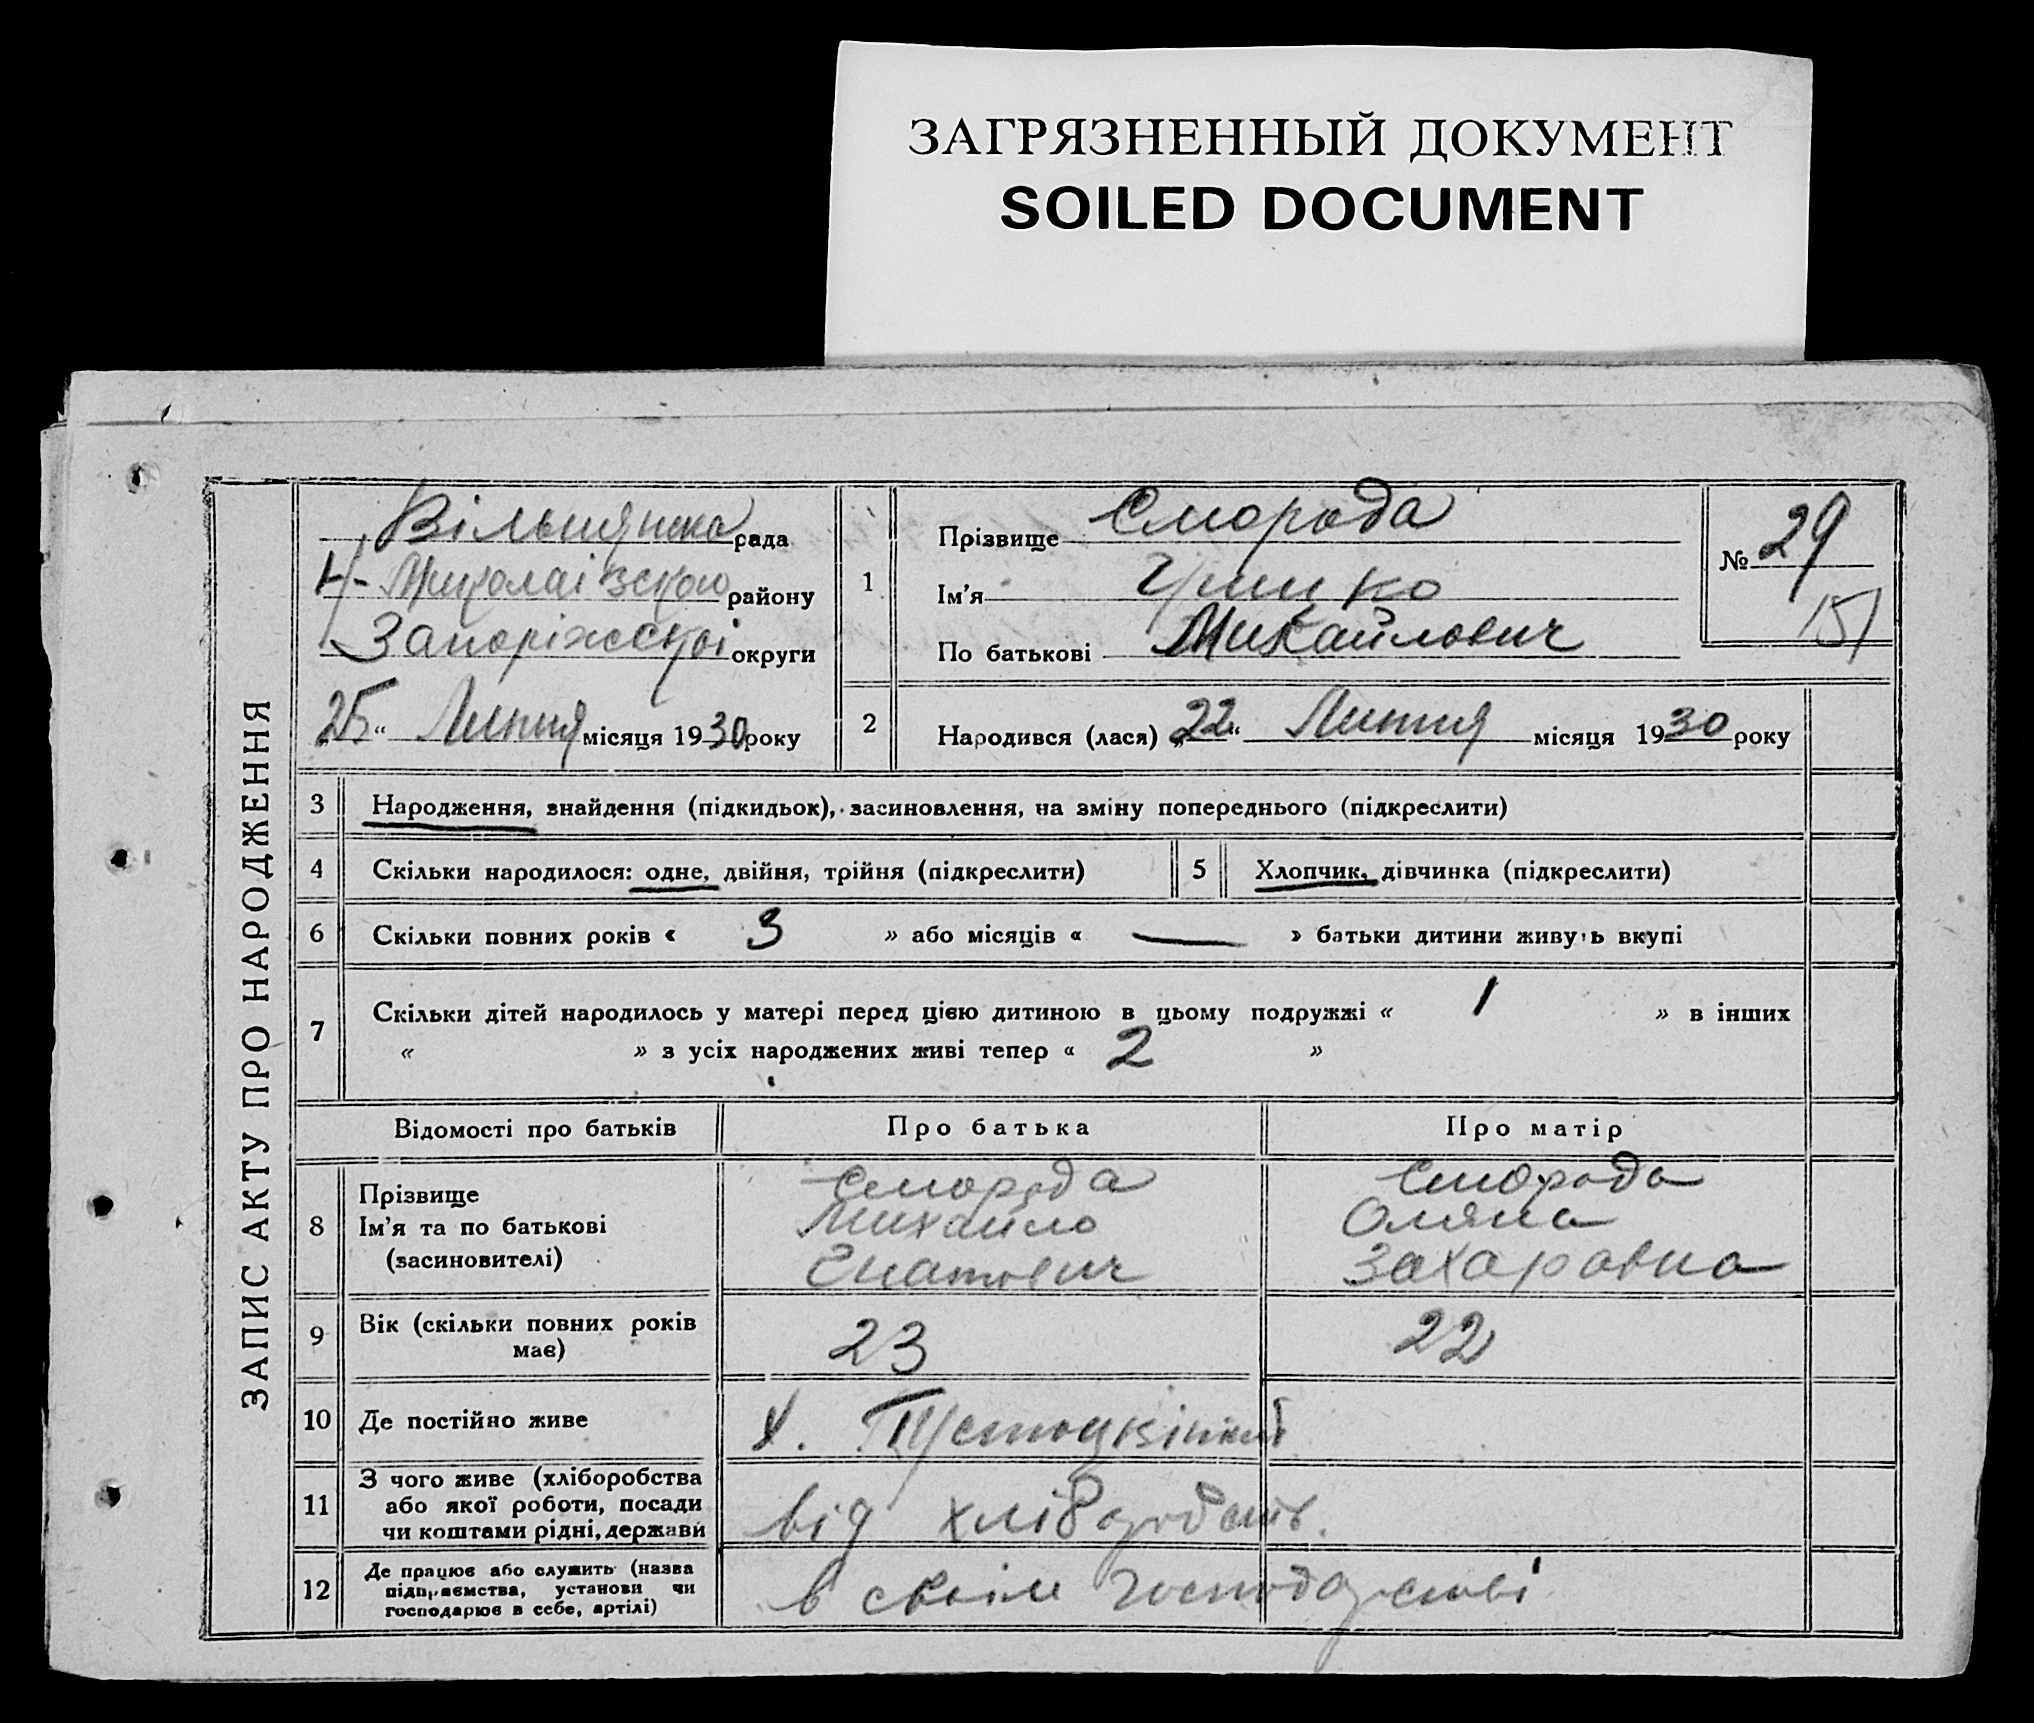 ЗАГРЯЗНЕННЫЙ ДОКУМЕНТ
SOILED DOCUMENT
ЗАПИС АКТУ ПРО НАРОДЖЕННЯ
Вільшянська рада
Н-Миколаівського району
Запоріжської округи
25 “ Липня місяця 1930 року
1
Прізвище Сморода
Ім’я Гришко
По батькові Михайлович
№ 29
151
2
Народився (лася) „22“ Липня місяця 1930 року
3 Народження, знайдення (підкидьок), засиновлення, на зміну попереднього (підкреслити)
4 Скільки народилося: одне, двійня, трійня (підкреслити)
5 Хлопчик, дівчинка (підкреслити)
6 Скільки повних років « 3 » або місяців « — » батьки дитини живуть вкупі
7 Скільки дітей народилось у матері перед цією дитиною в цьому подружжі « 1 » в інших
« » з усіх народжених живі тепер « 2 »
Відомості про батьків Про батька Про матір
8 Прізвище
Ім’я та по батькові
(засиновителі)
Сморода
Михайло
Гнатович
Сморода
Оляна
Захаровна
9 Вік (скільки повних років
має)
23 22
10 Де постійно живе
х.
11 З чого живе (хліборобства
або якої роботи, посади
чи коштами рідні, держави
від хліборобств.
12 Де працює або служить (назва
підприємства, установи чи
господарює в себе, артілі)
в своім господарстві